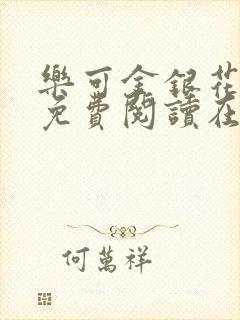 樂可金銀花
免費閱讀在
何萬祥